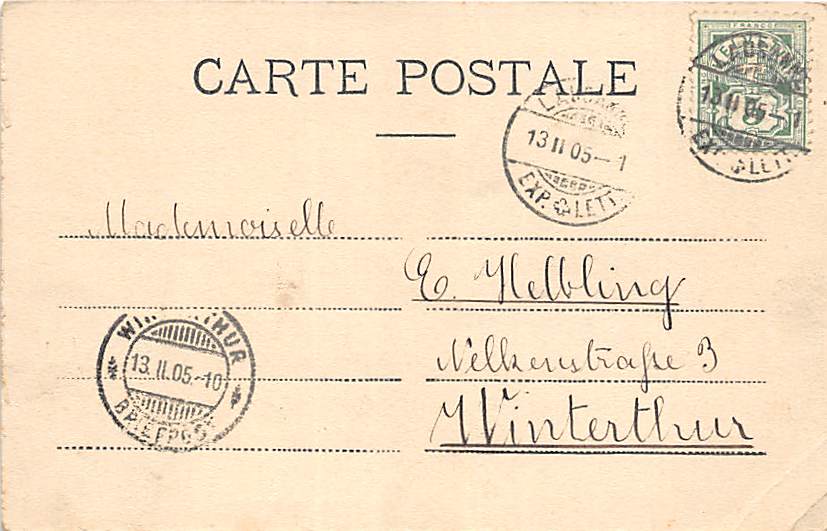 FRANCO
CARTE POSTALE
LAUSANNE
13 II 05–1
EXP. LETT.
LAUSANNE
13 II 05–1
EXP. LETT.
5
Mademoiselle
E. Helbling
Nelkenstraße 3
Winterthur
WINTERTHUR
13. II. 05.-10
BRIEFPOST